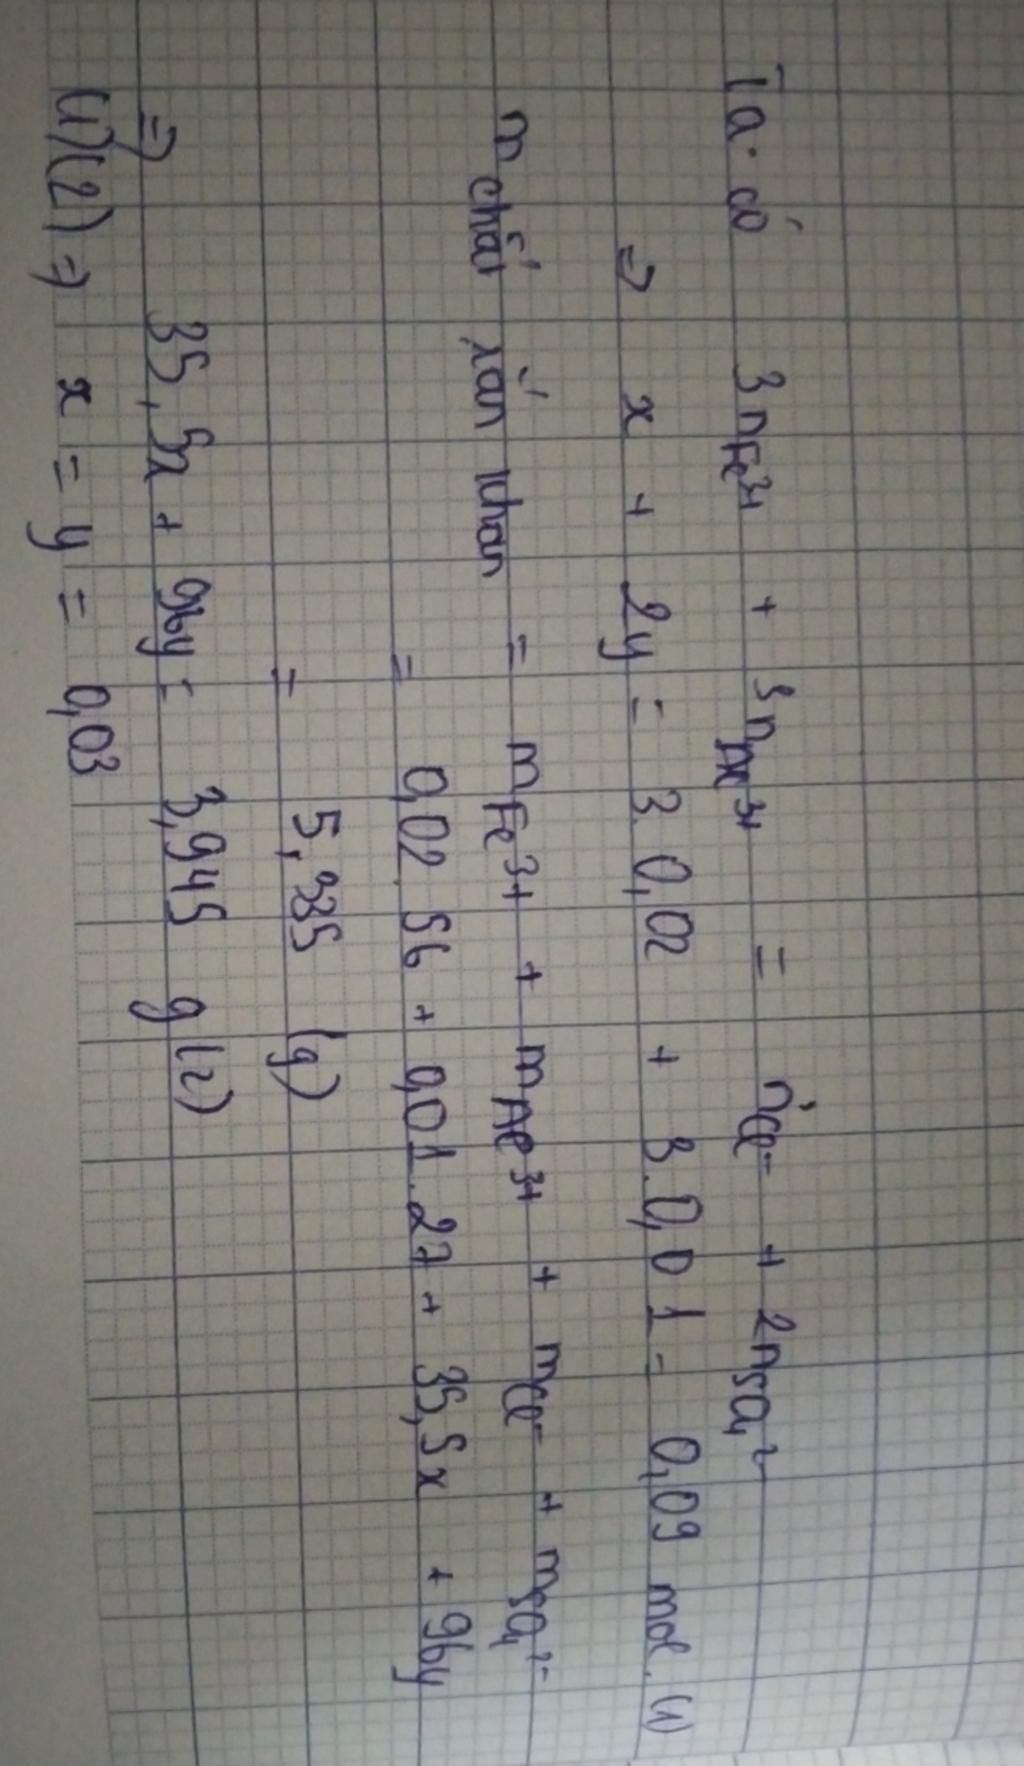 Ta có 3nFe³⁺ + 3nAl³⁺ = nCl⁻ + 2nSO₄²⁻
=> x + 2y = 3.0,02 + 3.0,01 = 0,09 mol. (1)
m chất rắn khan = mFe³⁺ + mAl³⁺ + mCl⁻ + mSO₄²⁻
= 0,02.56 + 0,01.27 + 35,5x + 96y
= 5,335 (g)
=> 35,5x + 96y = 3,945 g (2)
(1)(2) => x = y = 0,03